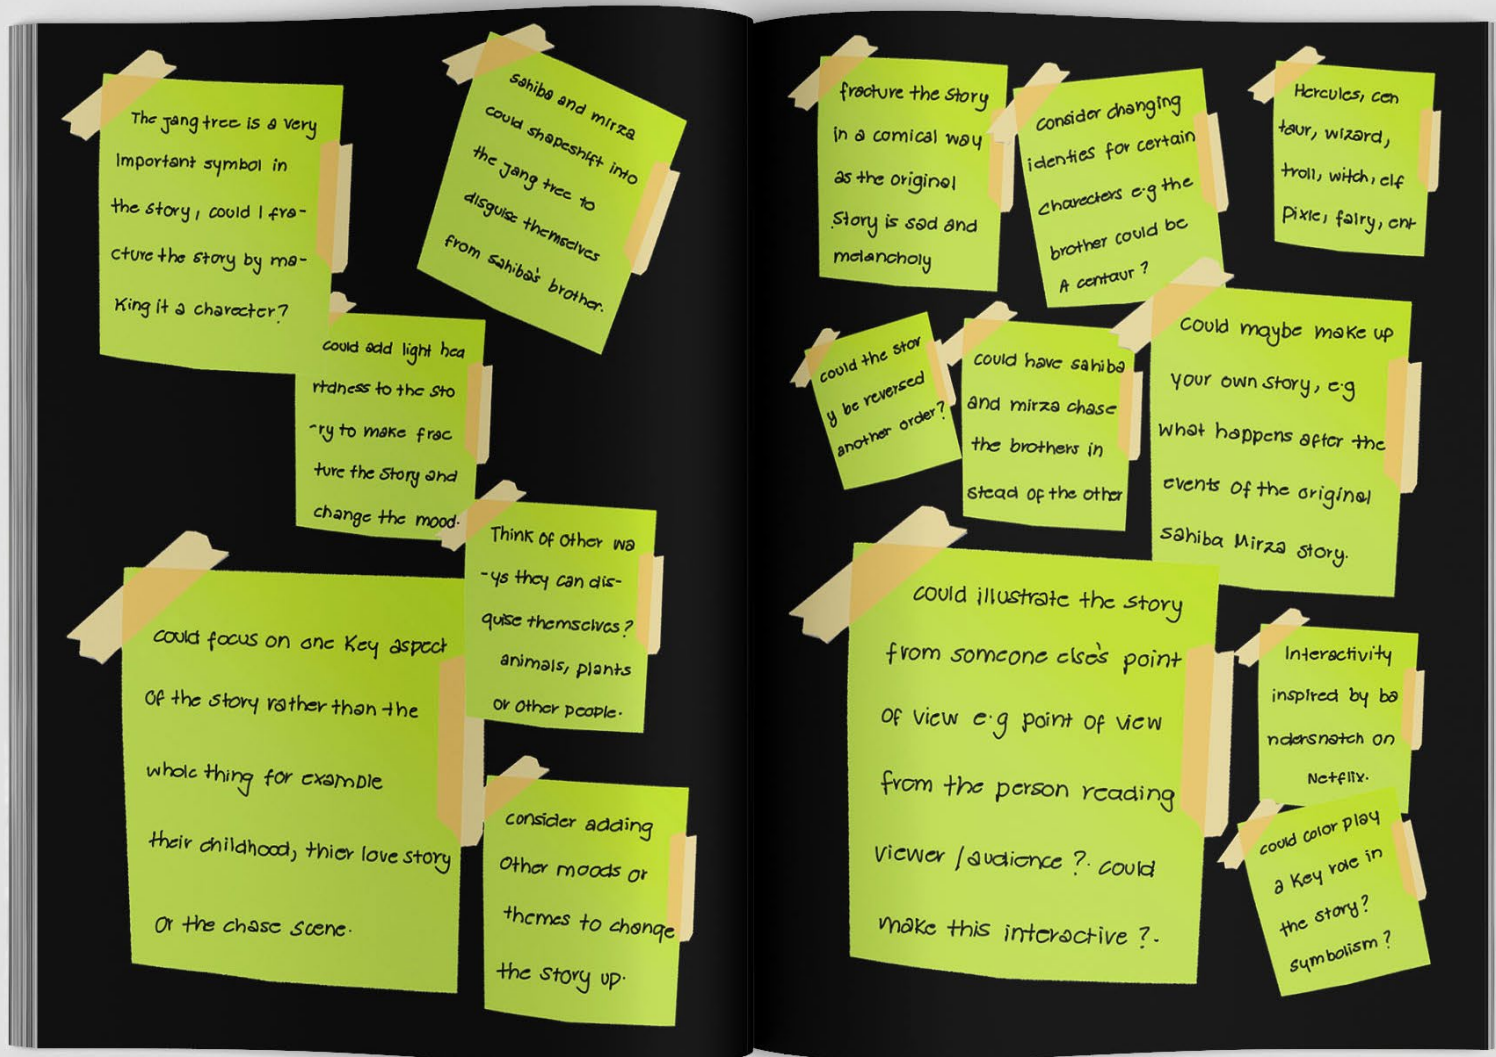 The jang tree is a very
Important symbol in
the story, could I fra-
cture the story by ma-
King it a charecter?
sahiba and mirza
could shapeshift into
the jang tree to
disguise themselves
from sahiba's brother.
could add light hea
rtdness to the sto
-ry to make frac
ture the story and
change the mood.
Think of other wa
-ys they can dis-
quise themselves?
animals, plants
or other people.
could focus on one key aspect
of the story rather than the
whole thing for example
their childhood, thier love story
or the chase scene.
consider adding
other moods or
themes to change
the story up.
fracture the story
in a comical way
as the original
story is sad and
melancholy
consider changing
identies for certain
charecters e.g the
brother could be
A centaur?
Hercules, cen
taur, wizard,
troll, witch, elf
Pixie, fairy, ent
could the stor
y be reversed
another order?
could have sahiba
and mirza chase
the brothers in
stead of the other
could maybe make up
your own story, e.g
what happens after the
events of the original
sahiba Mirza story.
could illustrate the story
from someone else's point
of view e.g point of view
from the person reading
viewer /audience ?. could
make this interactive ?.
Interactivity
inspired by ba
ndersnatch on
Netflix.
could color play
a key role in
the story?
symbolism?